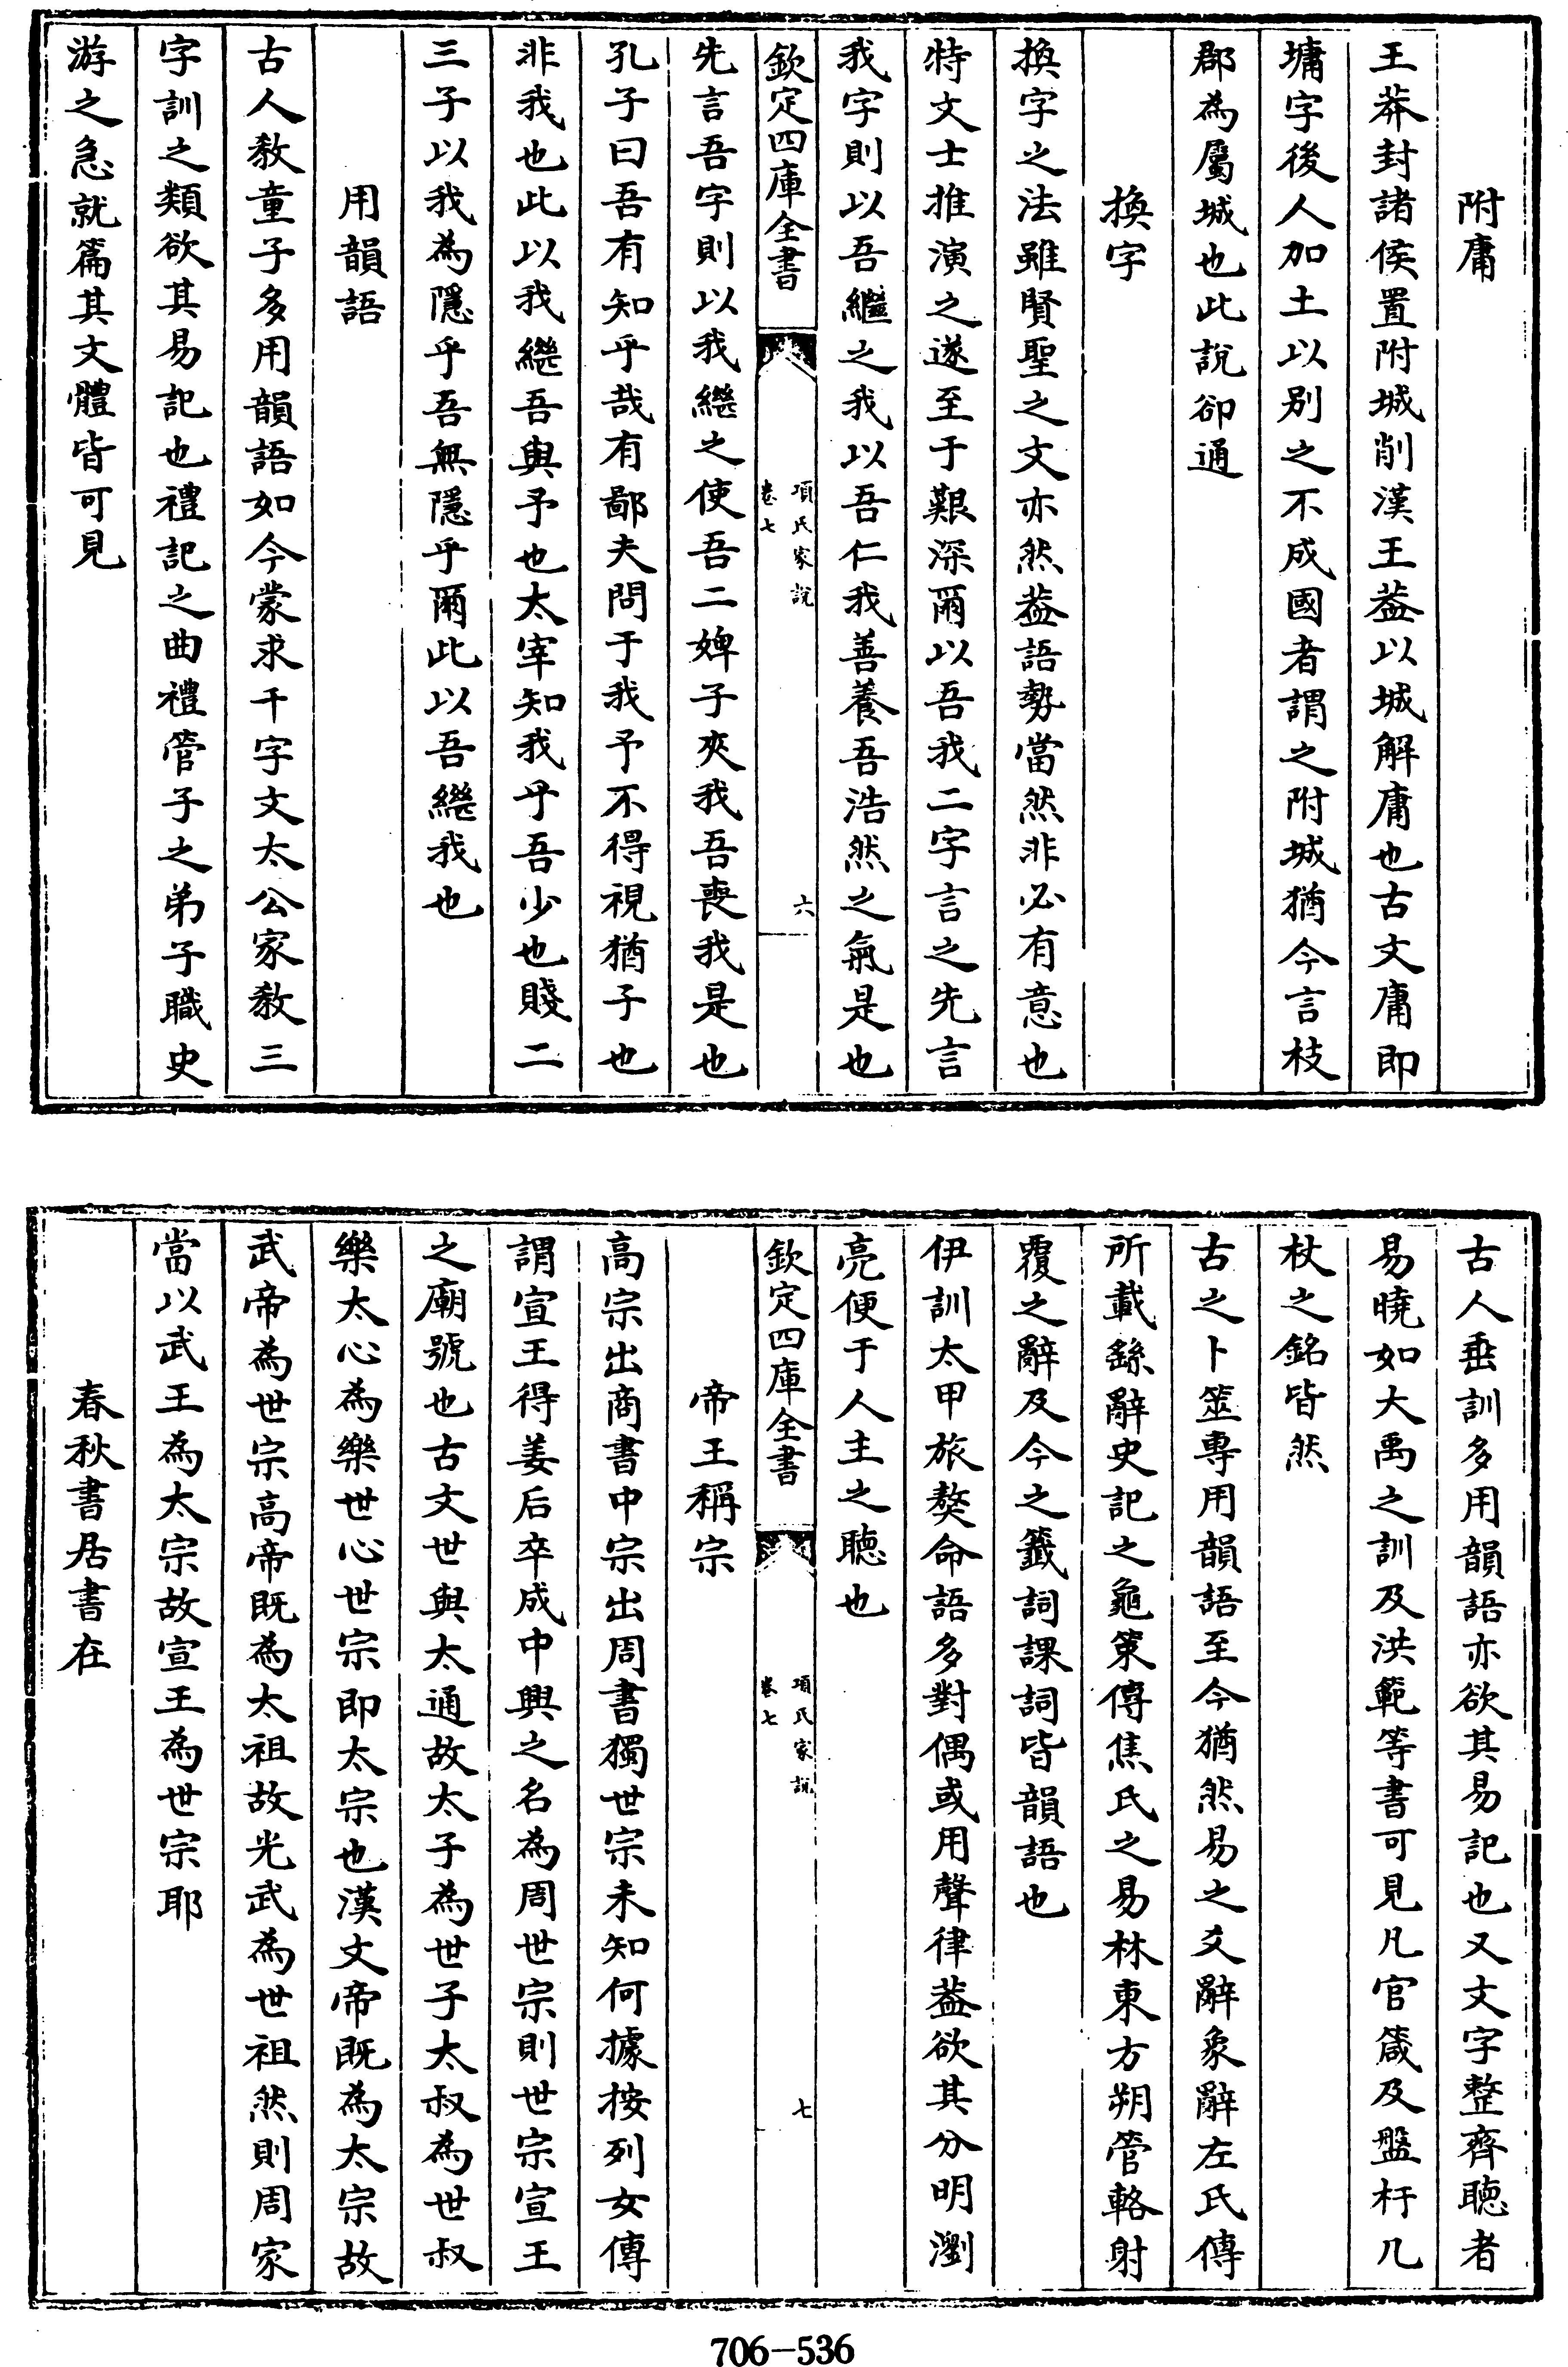 附庸
王莽封諸侯置附城削漢王葢以城解庸也古文庸即
墉字後人加土以别之不成國者謂之附城猶今言枝
郡為屬城也此說卻通
換字
換字之法雖賢聖之文亦然葢語勢當然非必有意也
特文士推演之遂至于艱深爾以吾我二字言之先言
我字則以吾繼之我以吾仁我善養吾浩然之氣是也
欽定四庫全書
項氏家說
卷七
六
先言吾字則以我繼之使吾二婢子夾我吾喪我是也
孔子曰吾有知乎哉有鄙夫問于我予不得視猶子也
非我也此以我繼吾與予也太宰知我乎吾少也賤二
三子以我為隱乎吾無隱乎爾此以吾繼我也
用韻語
古人敎童子多用韻語如今蒙求千字文太公家敎三
字訓之類欲其易記也禮記之曲禮管子之弟子職史
游之急就篇其文體皆可見
古人垂訓多用韻語亦欲其易記也又文字整齊聽者
易曉如大禹之訓及洪範等書可見凡官箴及盤杅几
杖之銘皆然
古之卜筮専用韻語至今猶然易之爻辭象辭左氏傳
所載繇辭史記之龜策傳焦氏之易林東方朔管輅射
覆之辭及今之籤詞課詞皆韻語也
伊訓太甲旅獒命語多對偶或用聲律葢欲其分明瀏
亮便于人主之聽也
欽定四庫全書
項氏家說
卷七
七
帝王稱宗
高宗出商書中宗出周書獨世宗未知何據按列女傳
謂宣王得姜后卒成中興之名為周世宗則世宗宣王
之廟號也古文世與太通故太子為世子太叔為世叔
樂太心為樂世心世宗即太宗也漢文帝旣為太宗故
武帝為世宗高帝旣為太祖故光武為世祖然則周家
當以武王為太宗故宣王為世宗耶
春秋書居書在
706-536